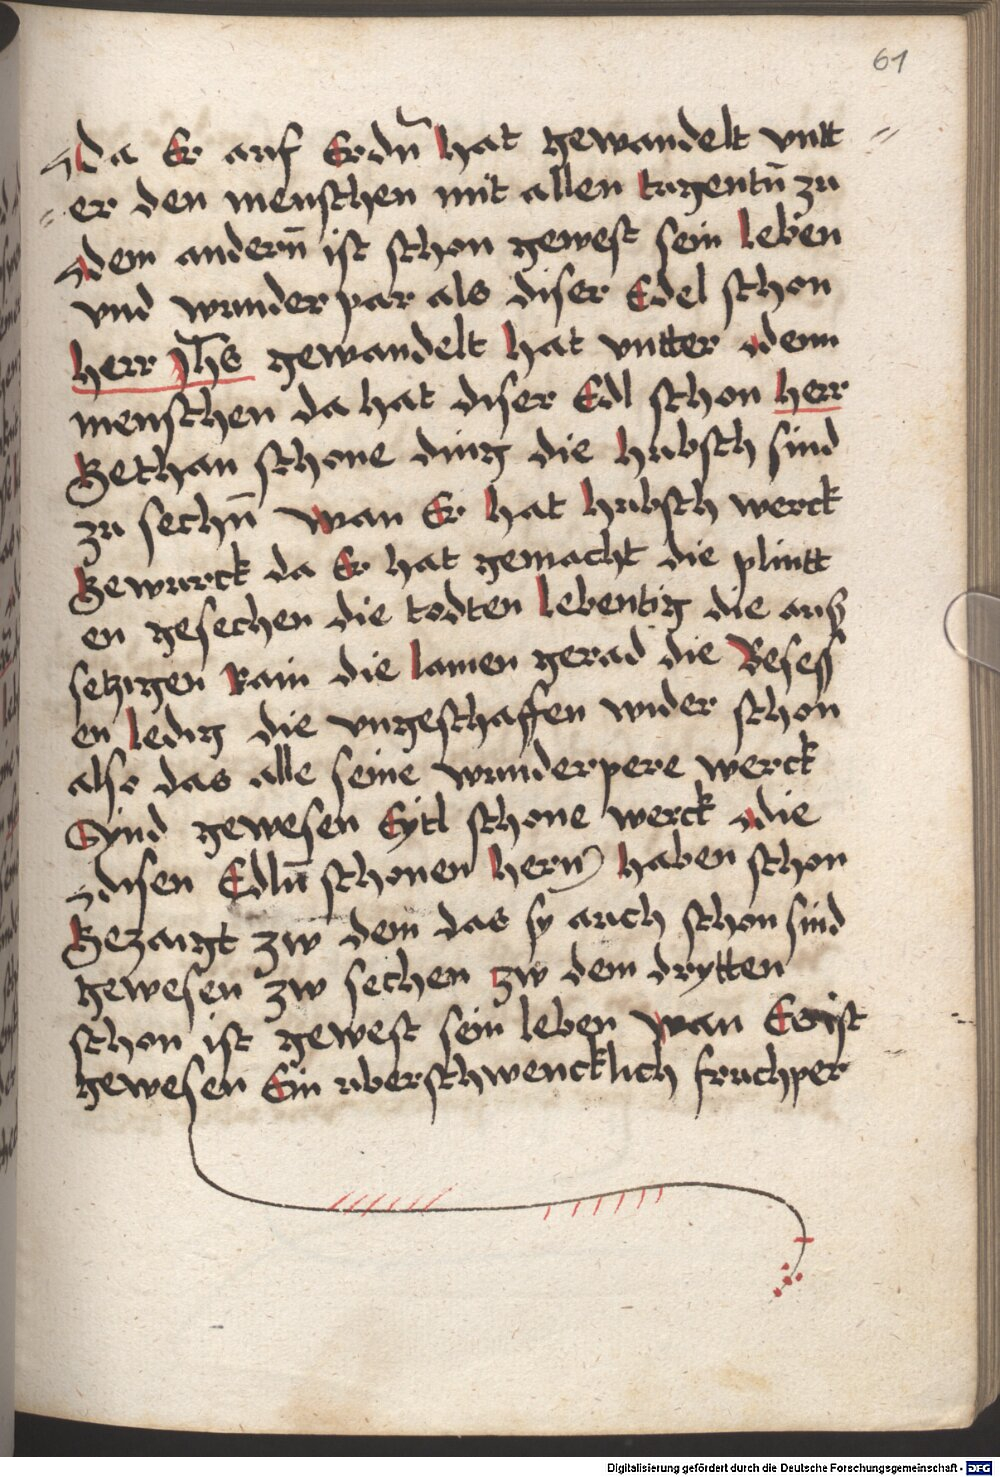 61
Da Er auf Erdn̄ hat gewandelt vntt
er den menschen mit allen tugentn̄ zu
dem andern̄ ist schon gewest sein leben
vnd wunderpar als diser Edel schon
herr Jhs gewandelt hat vntter denn
menschen da hat diser Edl schon herr
Gethan schone ding die hubsch sind
zu sechn̄ wan Er hat hubsch werck
Gewurck da Er hat gemacht die plintt
en gesechen die todten lebentig die auß
setzigen Rain die lamen gerad die Besess
en ledig die vngeschaffen wider schon
also das alle seine wunderpere werck
Synd gewesen Eytl schone werck die
disen Edln̄ schonen hern haben schon
Gezaigt zw dem das sy auch schon sind
gewesen zw sechen zw dem drytten
schon ist gewest sein leben wan Er ist
gewesen Ein uberschwencklich fruchper
Digitalisierung gefördert durch die Deutsche Forschungsgemeinschaft - DFG